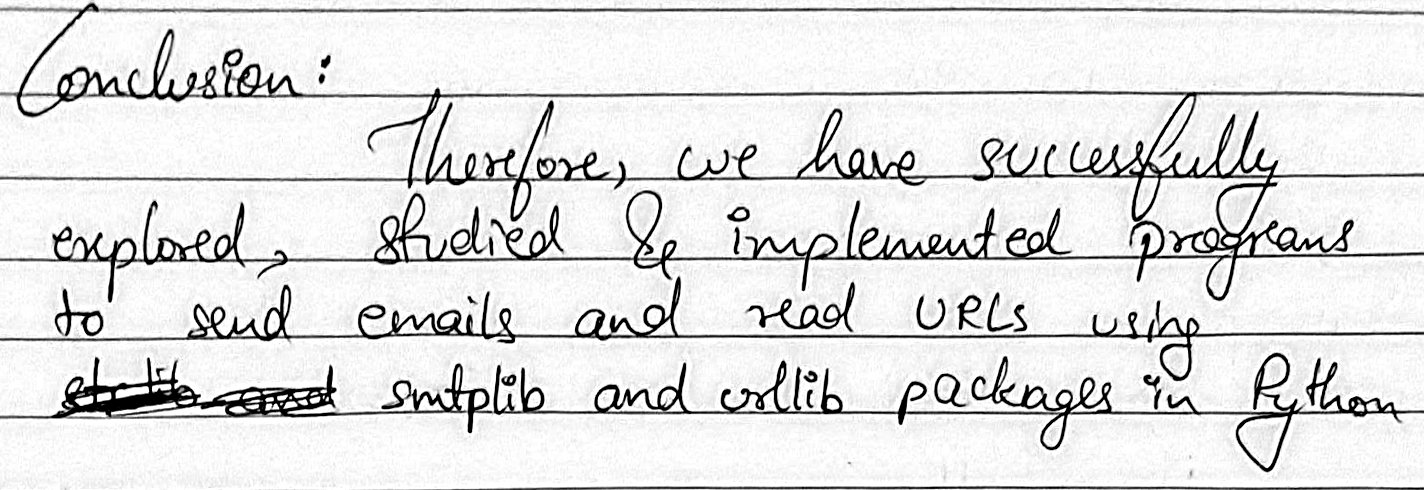 Conclusion:
Therefore, we have successfully
explored, studied & implemented programs
to send emails and read URLs using
smtplib and urllib packages in Python